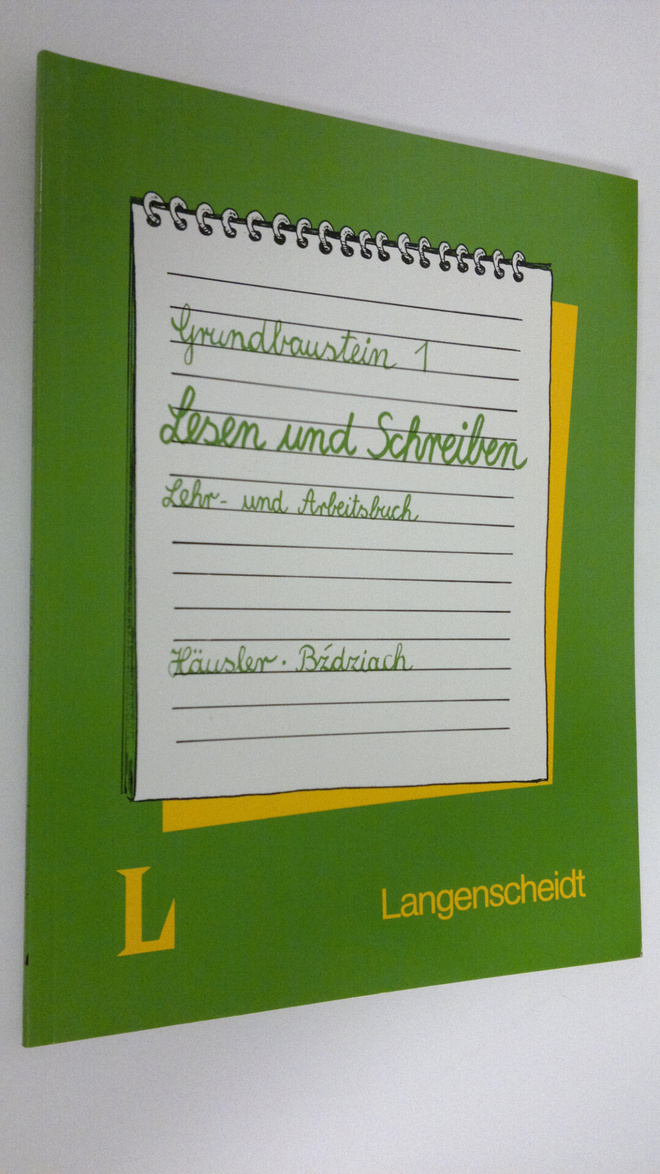 Grundbaustein 1
Lesen und Schreiben
Lehr- und Arbeitsbuch
Häusler · Bździach
L
Langenscheidt